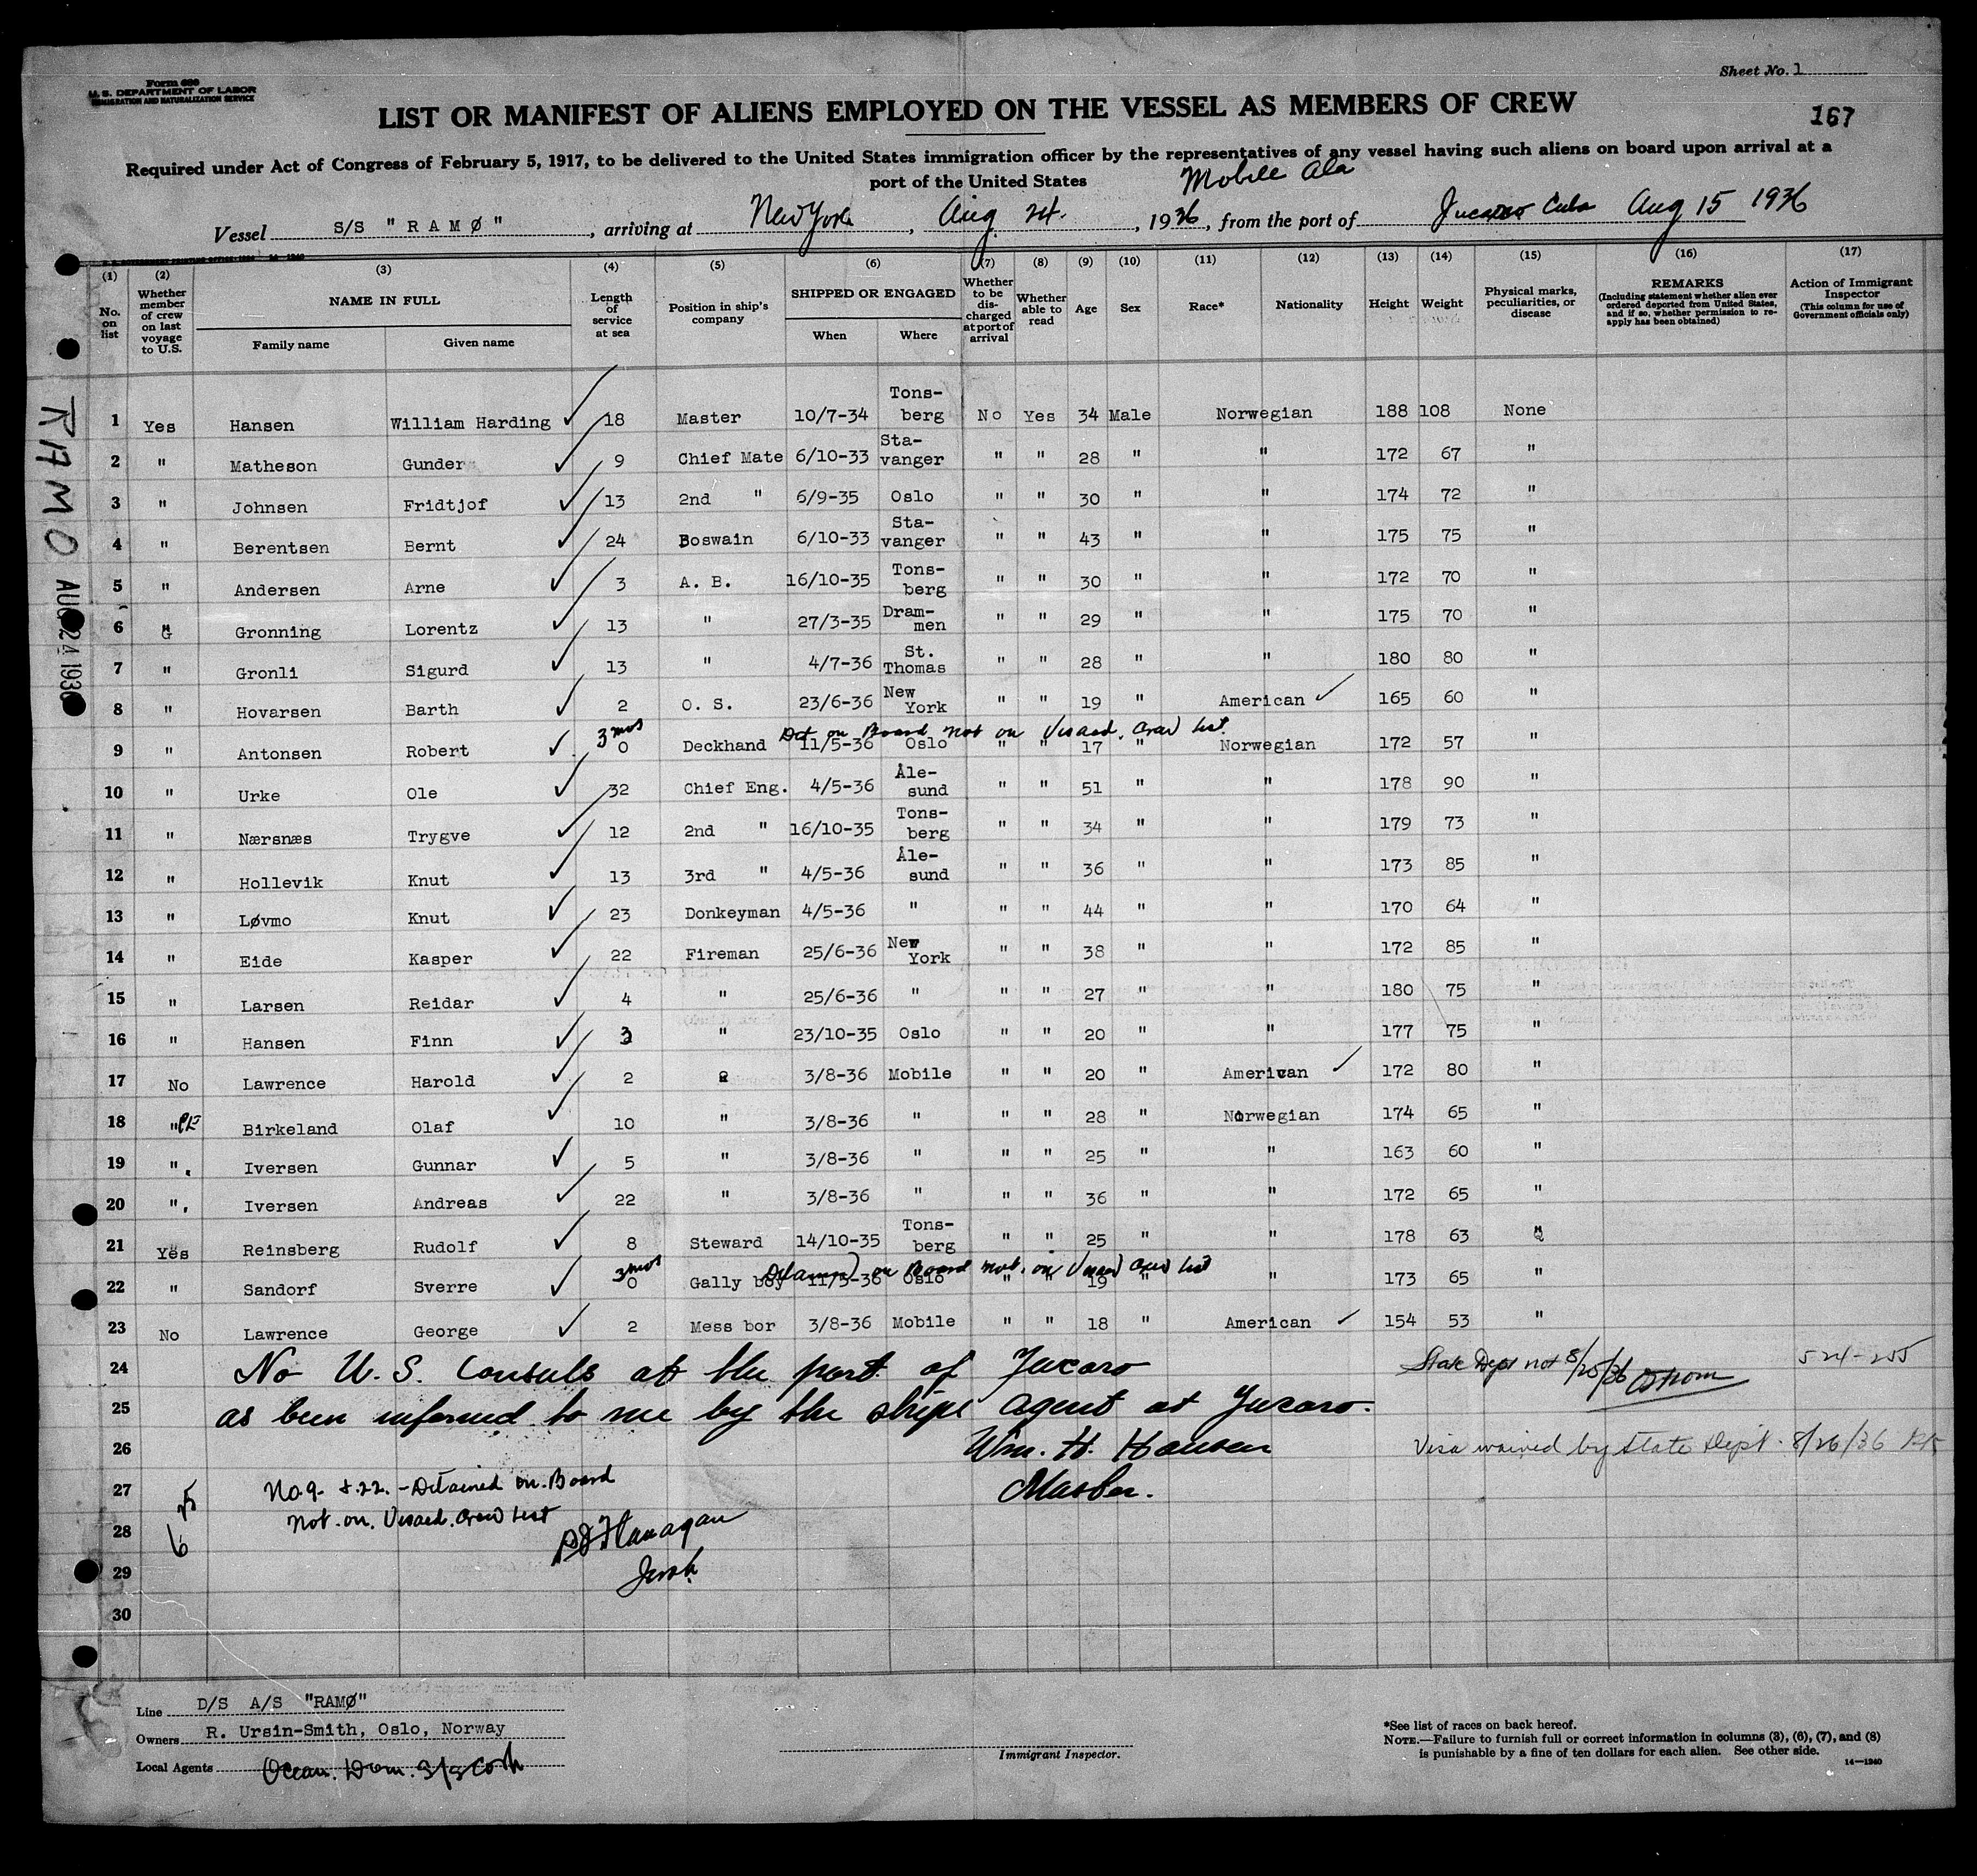 Form 680
U. S. DEPARTMENT OF LABOR
IMMIGRATION AND NATURALIZATION SERVICE
Sheet No. 1
167
LIST OR MANIFEST OF ALIENS EMPLOYED ON THE VESSEL AS MEMBERS OF CREW
Required under Act of Congress of February 5, 1917, to be delivered to the United States immigration officer by the representatives of any vessel having such aliens on board upon arrival at a
port of the United States
Mobile Ala
Vessel S/S "RAMØ", arriving at New York, Aug 24, 1936, from the port of Jucaro Cuba Aug 15 1936
(1) (2) (3) (4) (5) (6) (7) (8) (9) (10) (11) (12) (13) (14) (15) (16) (17)
No. on list Whether member of crew on last voyage to U.S. NAME IN FULL Family name Given name Length of service at sea Position in ship's company SHIPPED OR ENGAGED When Where Whether to be discharged at port of arrival Whether able to read Age Sex Race* Nationality Height Weight Physical marks, peculiarities, or disease REMARKS (Including statement whether alien ever ordered deported from United States, and if so, whether permission to re-apply has been obtained) Action of Immigrant Inspector (This column for use of Government officials only)
1 Yes Hansen William Harding 18 Master 10/7-34 Tons-berg No Yes 34 Male Norwegian 188 108 None
2 " Matheson Gunder 9 Chief Mate 6/10-33 Sta-vanger " " 28 " " 172 67 "
3 " Johnsen Fridtjof 13 2nd " 6/9-35 Oslo " " 30 " " 174 72 "
4 " Berentsen Bernt 24 Boswain 6/10-33 Sta-vanger " " 43 " " 175 75 "
5 " Andersen Arne 3 A. B. 16/10-35 Tons-berg " " 30 " " 172 70 "
6 " Gronning Lorentz 13 " 27/3-35 Dram-men " " 29 " " 175 70 "
7 " Gronli Sigurd 13 " 4/7-36 St. Thomas " " 28 " " 180 80 "
8 " Hovarsen Barth 2 O. S. 23/6-36 New York " " 19 " American 165 60 "
3 mos Det on Board not on Visaed. Crew List.
9 " Antonsen Robert 0 Deckhand 11/5-36 Oslo " " 17 " Norwegian 172 57 "
10 " Urke Ole 32 Chief Eng. 4/5-36 Åle-sund " " 51 " " 178 90 "
11 " Nærsnæs Trygve 12 2nd " 16/10-35 Tons-berg " " 34 " " 179 73 "
12 " Hollevik Knut 13 3rd " 4/5-36 Åle-sund " " 36 " " 173 85 "
13 " Løvmo Knut 23 Donkeyman 4/5-36 " " " 44 " " 170 64 "
14 " Eide Kasper 22 Fireman 25/6-36 New York " " 38 " 172 85 "
15 " Larsen Reidar 4 " 25/6-36 " " " 27 " " 180 75 "
16 " Hansen Finn 3 " 23/10-35 Oslo " " 20 " " 177 75 "
17 No Lawrence Harold 2 " 3/8-36 Mobile " " 20 " American 172 80 "
18 " Birkeland Olaf 10 " 3/8-36 " " " 28 " Norwegian 174 65 "
19 " Iversen Gunnar 5 " 3/8-36 " " " 25 " " 163 60 "
20 " Iversen Andreas 22 " 3/8-36 " " " 36 " " 172 65 "
21 Yes Reinsberg Rudolf 8 Steward 14/10-35 Tons-berg " " 25 " " 178 63 "
3 mos Detained on Board not on Visaed Crew List
22 " Sandorf Sverre 0 Gally boy 11/5-36 Oslo " " 19 " " 173 65 "
23 No Lawrence George 2 Mess bor 3/8-36 Mobile " " 18 " American 154 53 "
24 No U. S. Consuls at the port of Jucaro State Dept not 8/25/36 524-255
25 as been informed to me by the ships agent at Jucaro.
26 Wm. H. Hansen Visa waived by State Dept. 8/26/36
27 No. 9 & 22. - Detained on Board Master.
28 Not on Visaed. Crew List
Flanagan
29
30
RAMO AUG 24 1936
Line D/S A/S "RAMØ"
Owners R. Ursin-Smith, Oslo, Norway
Local Agents Ocean. Dom. S/S Co
Immigrant Inspector.
*See list of races on back hereof.
NOTE.—Failure to furnish full or correct information in columns (3), (6), (7), and (8)
is punishable by a fine of ten dollars for each alien. See other side.
14—1240